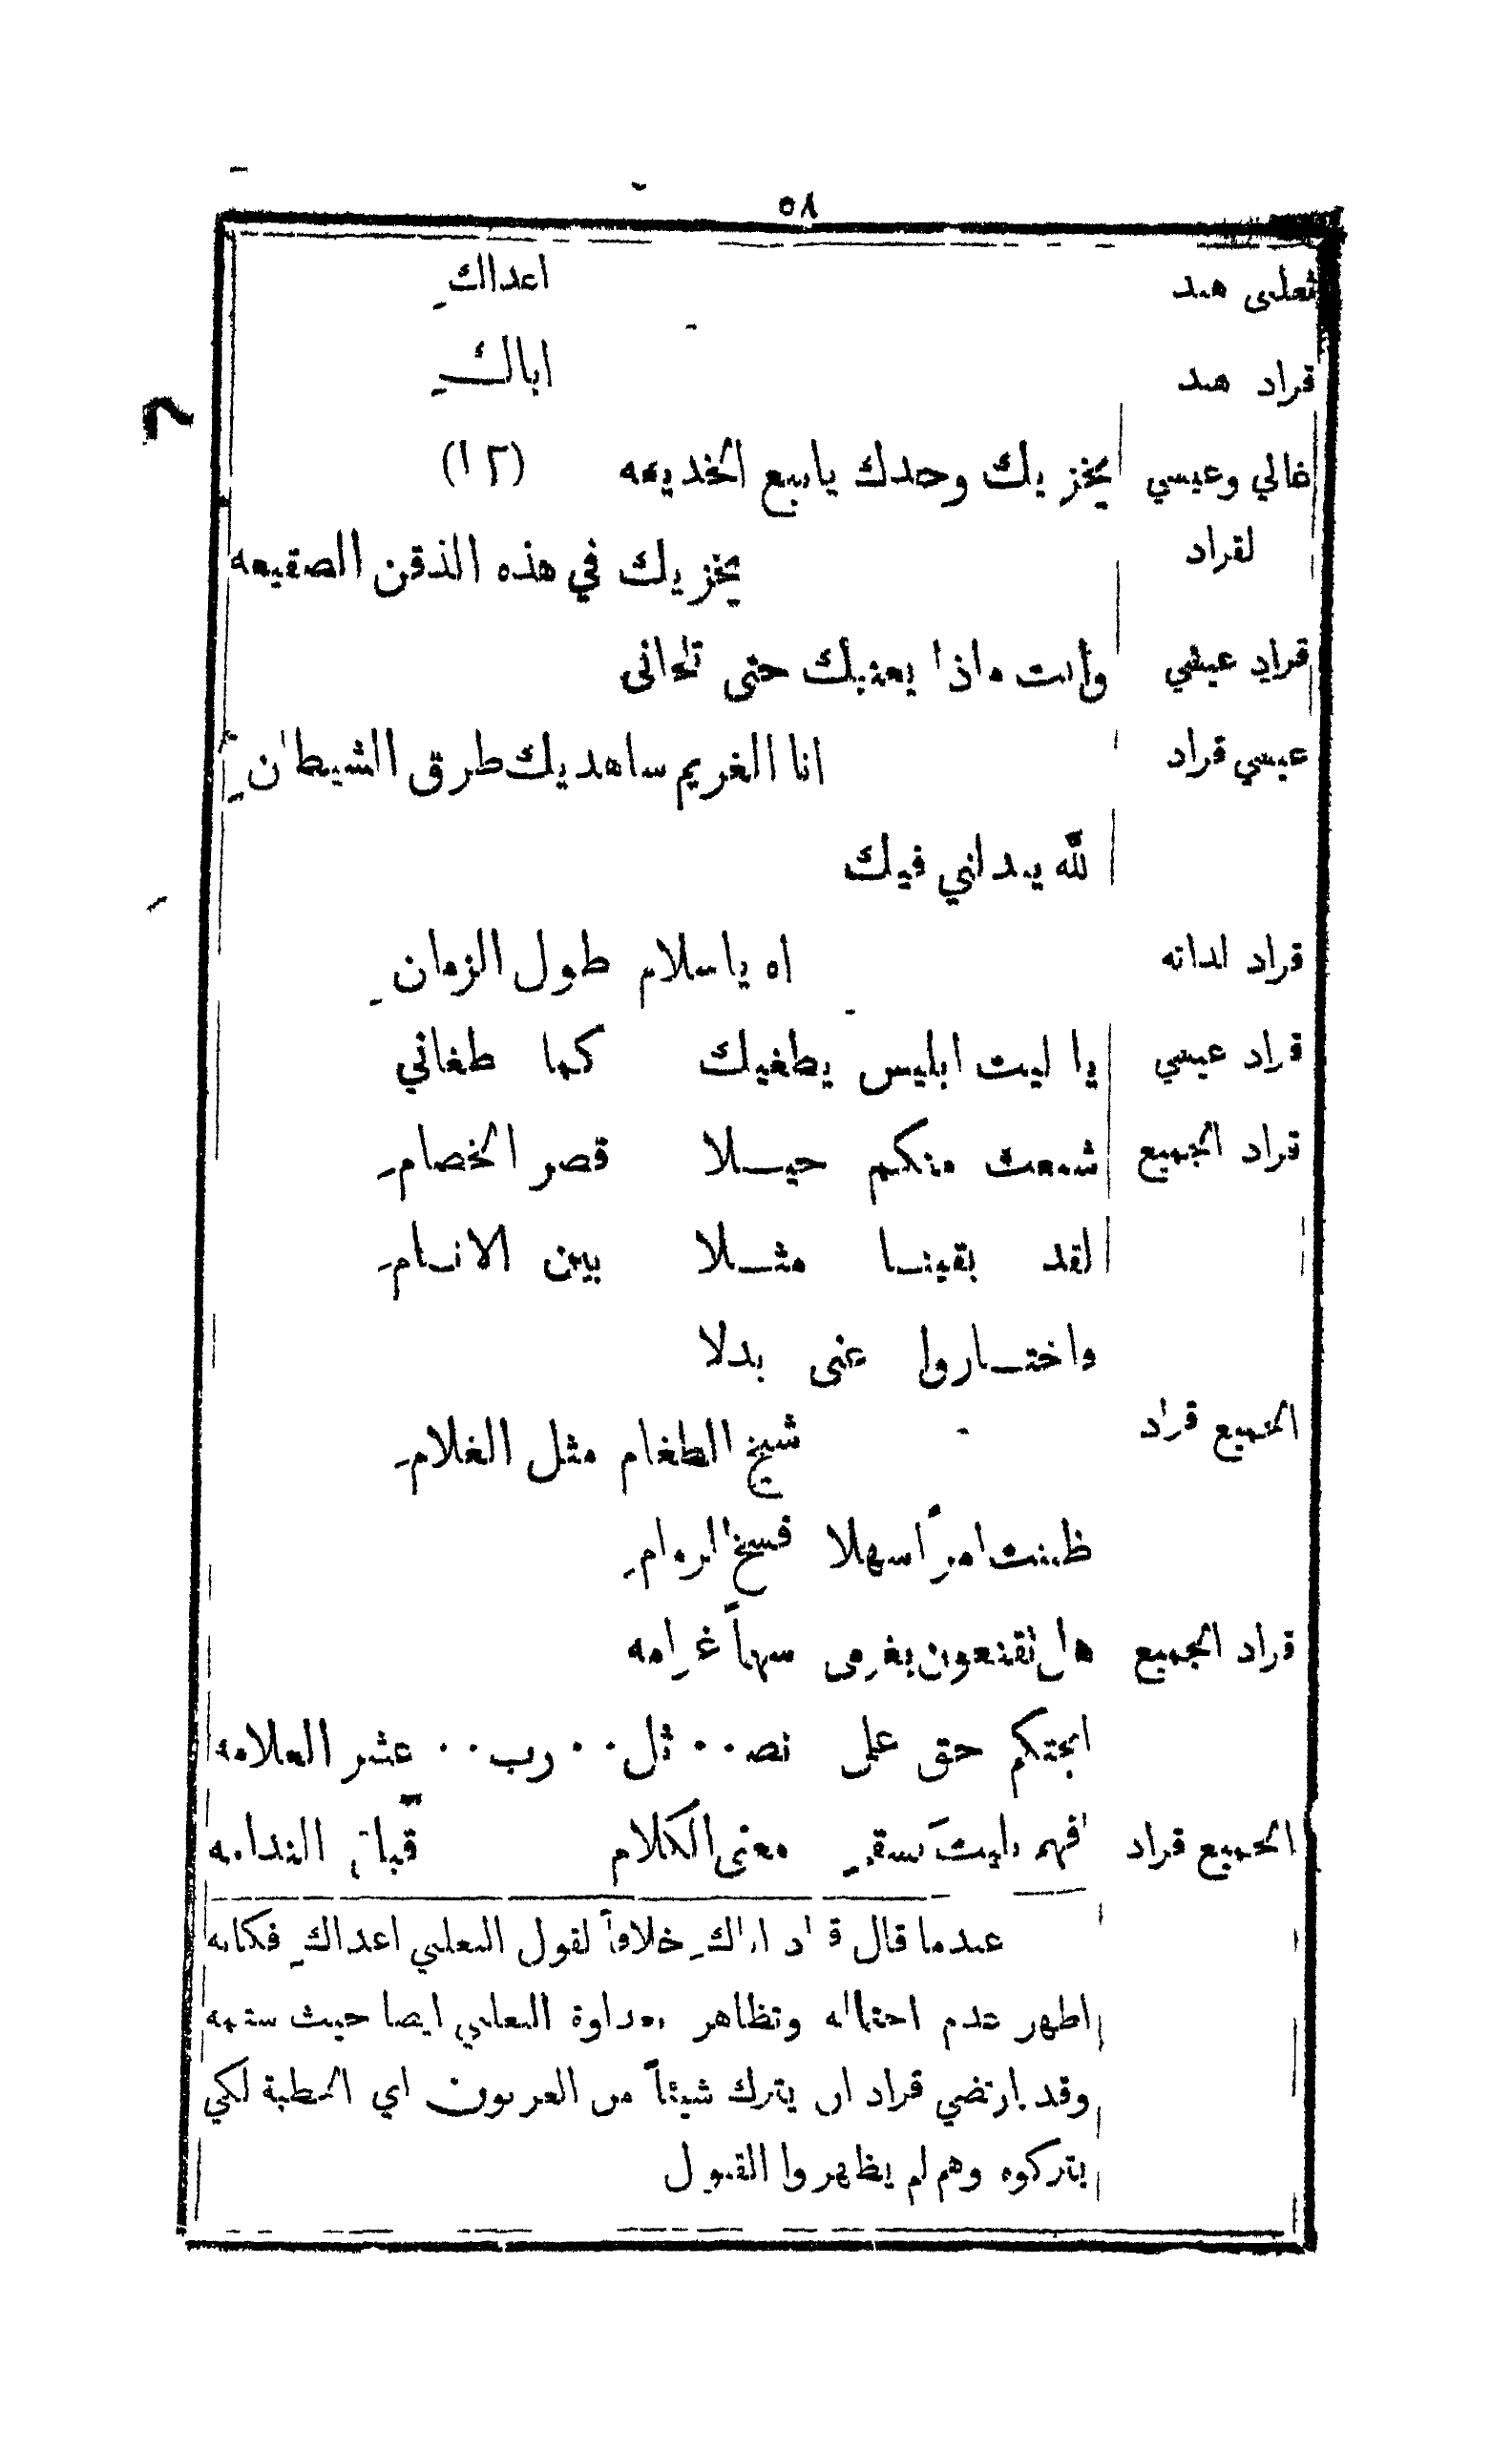 ٥٨
ثعلبى هند اعداكِ
قراد هند اباكِ
غالي وعيسي يخزيك وحدك يانبيع الخديعه (١٢)
لقراد يخزيك في هذه الذقن الصقيعه
قراد عيسي وأنت ماذا يعنيك حتى تلحانى
عيسي قراد انا الغريم ساهديك طرق الشيطانِ
لله يدانى فيك
قراد لذاته اه ياسلام طول الزمانِ
قراد عيسي يا ليت ابليس يطغيك كما طغاني
قراد الجميع شبعت منكم حيلا قصر الخصامِ
لقد بقينا مثلا بين الانامِ
واختاروا عنى بدلا
الجميع قراد شيخ الطغام مثل الغلامِ
ظننت امراً سهلا فسخ المرامِ
قراد الجميع هل تقنعون بغرمى سهماً غرامه
ابجتكم حق على نصـ٠٠ ثل٠٠ رب٠٠ عشر العلامه
الجميع قراد افهم معنى الكلام الندامه
عندما قال قراد اباكِ خلافاً لقول الثعلبي اعداكِ فكانه
اظهر عدم احتماله وتظاهر بعداوة الثعلبي ايضا حيث ستمه
وقد ارتضي قراد ان يترك شيئاً من العربون اي الخطبة لكي
يتركوه وهم لم يظهروا القبول